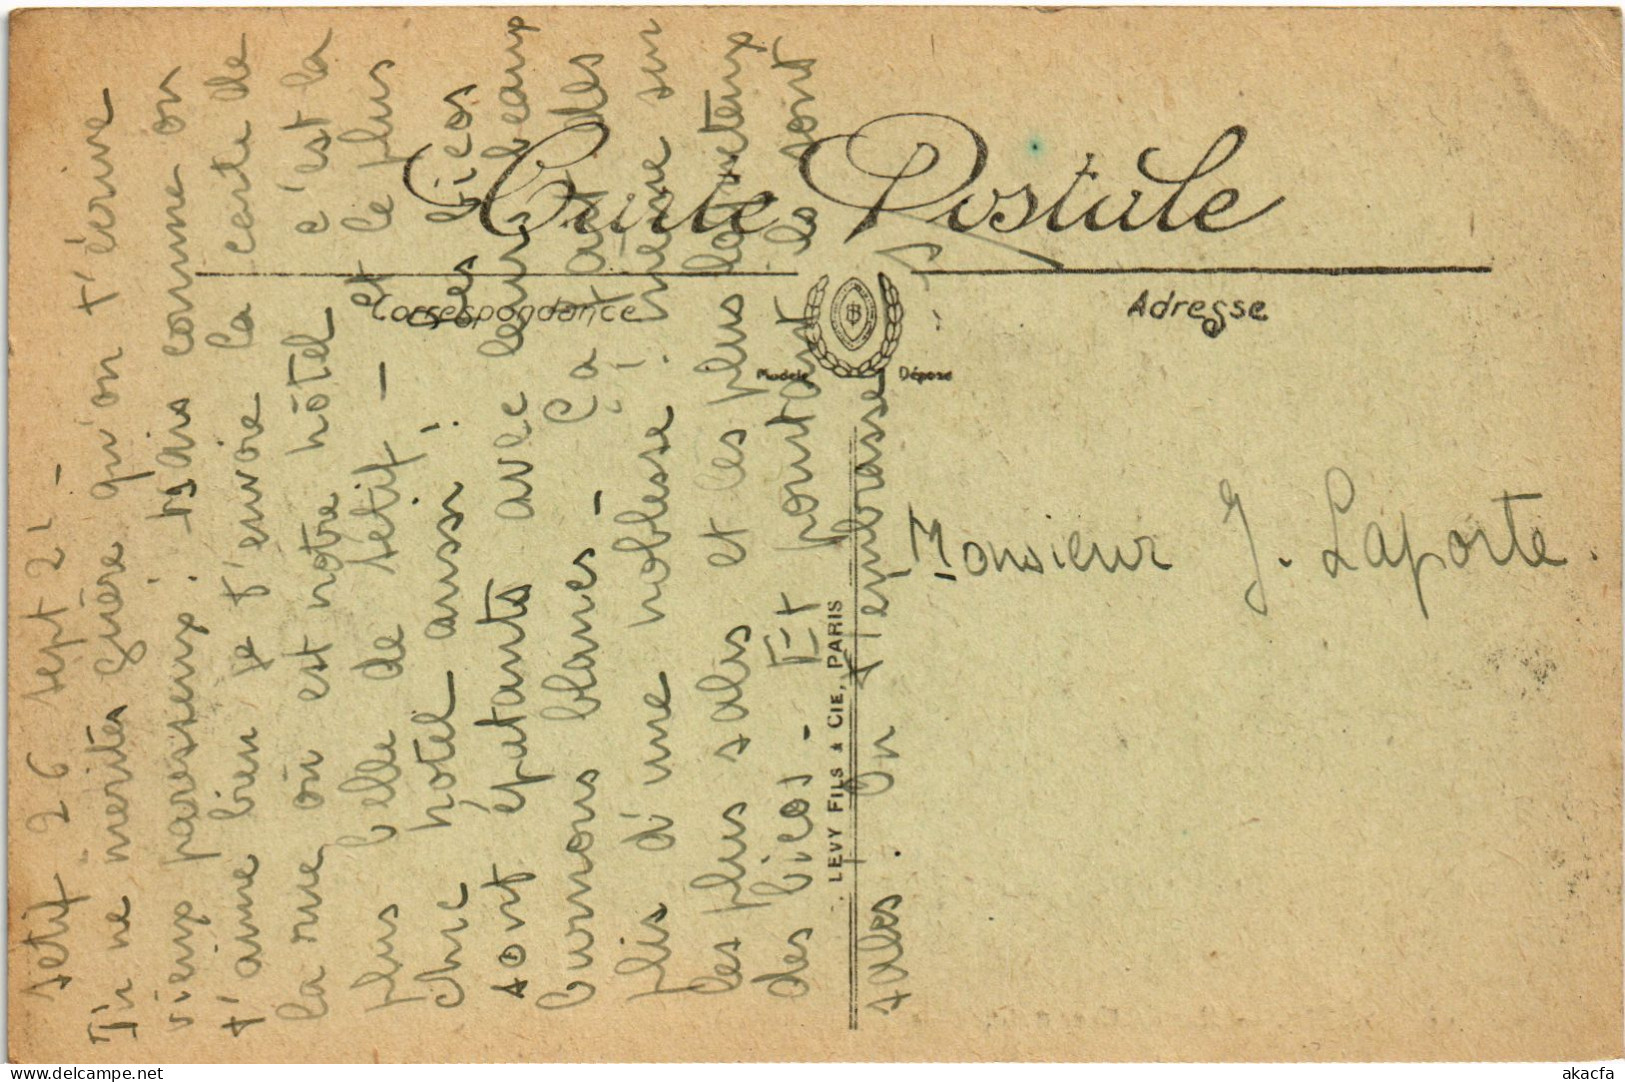 Carte Postale
Correspondance
Adresse
Modèle Déposé
LEVY FILS & CIE, PARIS
Setif 26 sept 21 -
Tu ne mérites guère qu'on t'écrive
vieux paresseux ! Mais comme on
t'aime bien je t'envoie la carte de
la rue où est notre hôtel c'est la
plus belle de Sétif - et le plus
chic hôtel aussi ! Les bicos
sont épatants avec leurs beaux
burnous blancs - Ça a des
plis d'une noblesse ! même sur
les plus sales et les plus loqueteux
des bicos - Et pourtant ils sont
sales. On t'embrasse
Monsieur J. Laporte.
akacfa